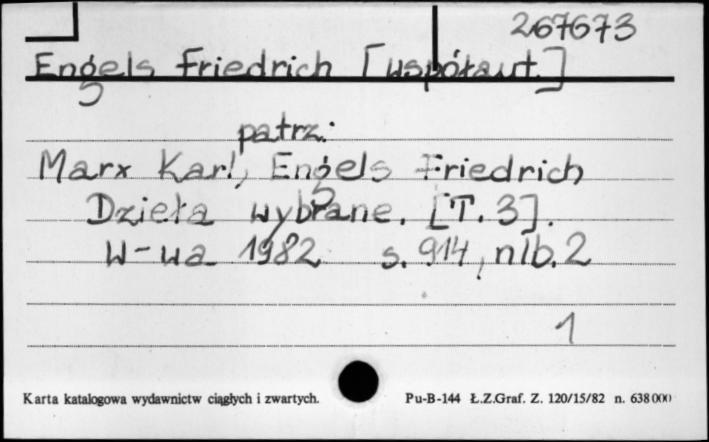 267673
Engels Friedrich [współaut.]
patrz:
Marx Karl, Engels Friedrich
Dzieła wybrane. [T. 3].
W-wa 1982 s. 914, nlb. 2
1
Karta katalogowa wydawnictw ciągłych i zwartych. Pu-B-144 Ł.Z.Graf. Z. 120/15/82 n. 638 000